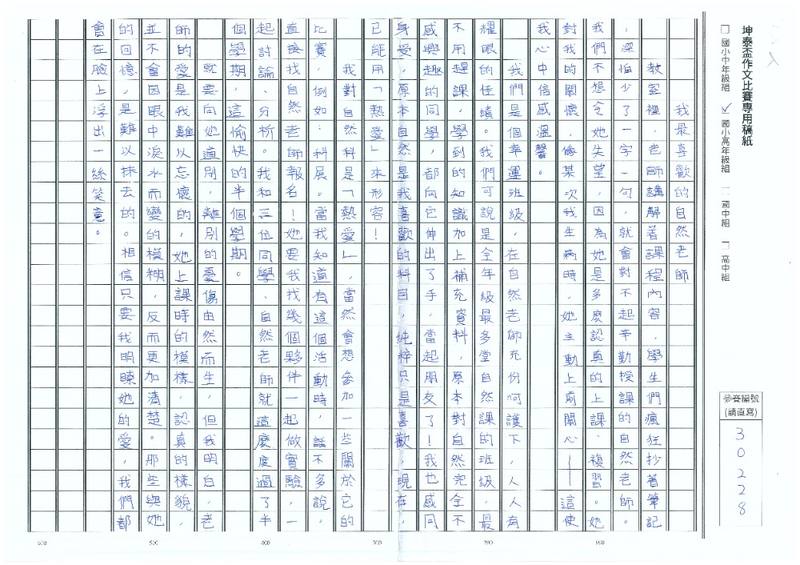 坤泰盃作文比賽專用稿紙
□國小中年級組 ✓國小高年級組 □國中組 □高中組
參賽編號
(請直寫)
30228
我最喜歡的自然老師
教室裡，老師講解著課程內容，學生們瘋狂抄著筆記
，深怕少了一字一句，就會對不起辛勤授課的自然老師。
我們不想令她失望，因為她是多麼認真的上課、複習。她
對我的關懷，像某次我生病時，她主動上前關心——這使
我心中倍感溫馨。
我們是個幸運班級，在自然老師充份呵護下，人人有
耀眼的佳績。我們可說是全年級最多堂自然課的班級，最
不用趕課，學到的知識加上補充資料，原本對自然完全不
感興趣的同學，都向它伸出了手，當起朋友了！我也感同
身受，原本自然是我喜歡的科目，純粹只是喜歡，現在，
已能用「熱愛」來形容！
我對自然科是「熱愛」，當然會想參加一些關於它的
比賽，例如：科展。當我知道有這個活動時，話不多說，
直接找自然老師報名！她要我找幾個夥伴一起做實驗，一
起討論、分析。我和三位同學、自然老師就這麼度過了半
個學期，這愉快的半個學期。
就要向她道別，離別的憂傷由然而生，但我明白，老
師的愛是我難以忘懷的，她上課時的模樣，認真的樣貌，
並不會因眼中淚水而變的模糊，反而更加清楚。那些與她
的回憶，是難以抹去的。相信只要我明瞭她的愛，我們都
會在臉上浮出一絲笑意。